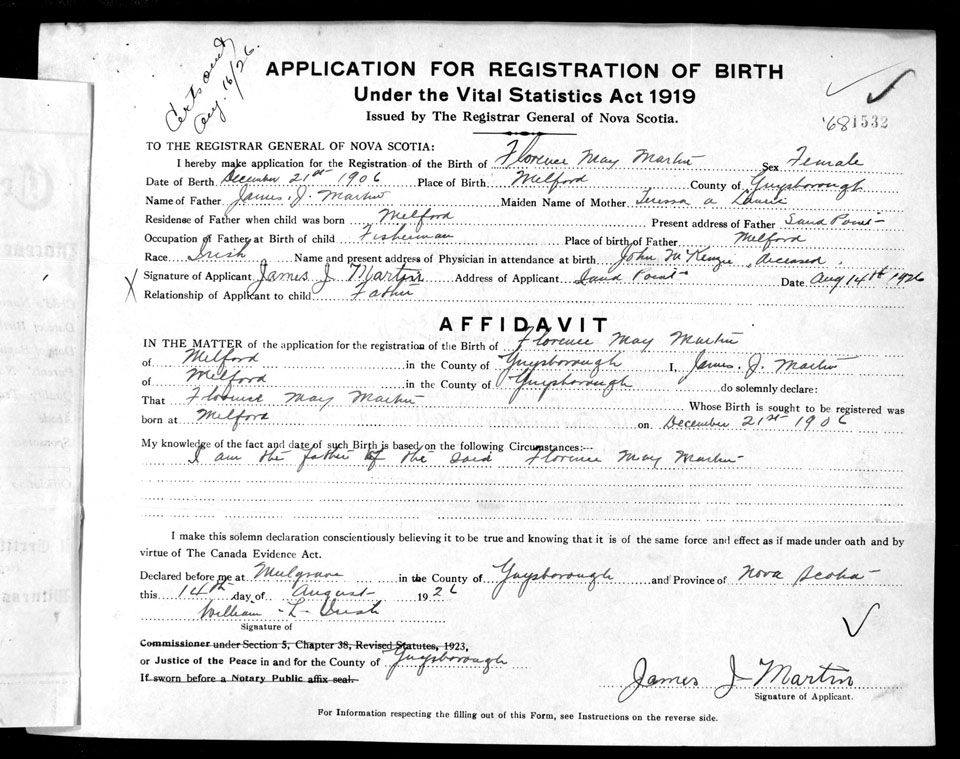 Certs out
Aug. 16/26.
APPLICATION FOR REGISTRATION OF BIRTH
Under the Vital Statistics Act 1919
Issued by The Registrar General of Nova Scotia.
'681532
TO THE REGISTRAR GENERAL OF NOVA SCOTIA:
I hereby make application for the Registration of the Birth of Florence May Martin Sex Female
Date of Berth December 21st 1906 Place of Birth Melford County of Guysborough
Name of Father James J. Martin Maiden Name of Mother Teressa A
Residense of Father when child was born Melford Present address of Father Sand Point
Occupation of Father at Birth of child Fisherman Place of birth of Father Melford
Race Irish Name and present address of Physician in attendance at birth John McKenzie, deceased.
X Signature of Applicant James J Martin Address of Applicant Sand Point Date Aug 14th 1926
Relationship of Applicant to child Father
AFFIDAVIT
IN THE MATTER of the application for the registration of the Birth of Florence May Martin
of Melford in the County of Guysborough I, James. J. Martin
of Melford in the County of Guysborough do solemnly declare:
That Florence May Martin Whose Birth is sought to be registered was
born at Melford on December 21st 1906
My knowledge of the fact and date of such Birth is based on the following Circumstances:--
I am the father of the said Florence May Martin
I make this solemn declaration conscientiously believing it to be true and knowing that it is of the same force and effect as if made under oath and by
virtue of The Canada Evidence Act.
Declared before me at Mulgrave in the County of Guysborough and Province of Nova Scotia
this 14th day of August 1926
William L Irish
Signature of
Commissioner under Section 5, Chapter 38, Revised Statutes, 1923,
or Justice of the Peace in and for the County of Guysborough
If sworn before a Notary Public affix seal.
James J Martin
Signature of Applicant.
For Information respecting the filling out of this Form, see Instructions on the reverse side.